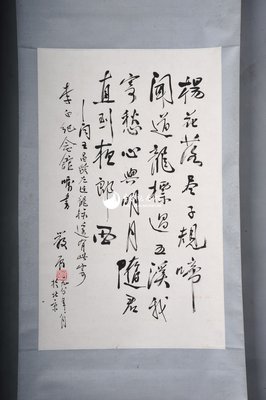 楊花落盡子規啼
聞道龍標過五溪我
寄愁心與明月隨君
直到夜郎西
聞王昌齡左遷龍標遙有此寄
李白紀念館囑書
嚴
一九八年月
於北京